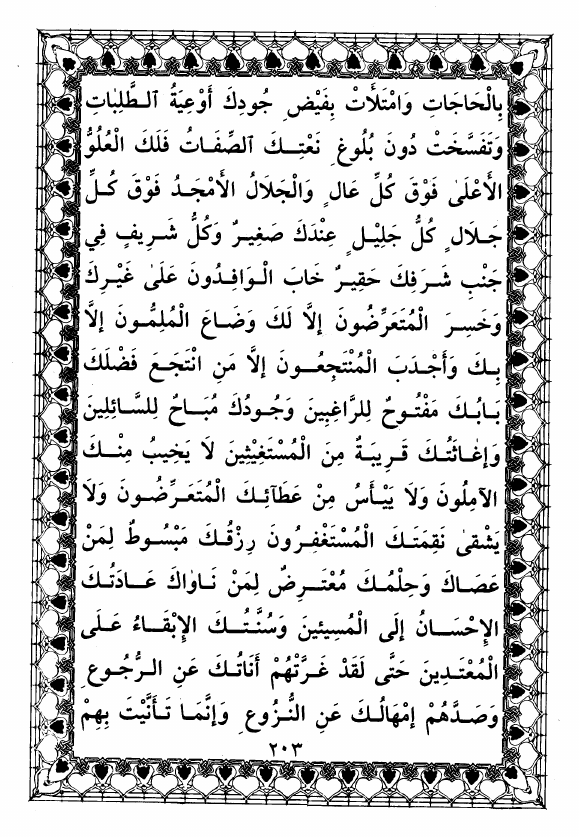 بِالْحَاجَاتِ وَامْتَلَأَتْ بِفَيْضِ جُودِكَ أَوْعِيَةُ الطَّلِبَاتِ
وَتَفَسَّخَتْ دُونَ بُلُوغِ نَعْتِكَ الصِّفَاتُ فَلَكَ الْعُلُوُّ
الأَعْلَىٰ فَوْقَ كُلِّ عَالٍ وَالْجَلَالُ الأَمْجَدُ فَوْقَ كُلِّ
جَلَالٍ كُلُّ جَلِيْلٍ عِنْدَكَ صَغِيرٌ وَكُلُّ شَرِيفٍ فِي
جَنْبِ شَرَفِكَ حَقِيرٌ خَابَ الْوَافِدُونَ عَلَىٰ غَيْرِكَ
وَخَسِرَ الْمُتَعَرِّضُونَ إلَّا لَكَ وَضَاعَ الْمُلِمُّونَ إلَّا
بِكَ وَأَجْدَبَ الْمُنْتَجِعُونَ إلَّا مَنِ انْتَجَعَ فَضْلَكَ
بَابُكَ مَفْتُوحٌ لِلرَّاغِبِينَ وَجُودُكَ مُبَاحٌ لِلسَّائِلِينَ
وَإغَاثَتُكَ قَرِيبَةٌ مِنَ الْمُسْتَغِيْثِينَ لَا يَخِيبُ مِنْكَ
الآمِلُونَ وَلَا يَيْأَسُ مِنْ عَطَآئِكَ الْمُتَعَرِّضُونَ وَلَا
يَشْقىٰ بِنَقِمَتِكَ الْمُسْتَغْفِرُونَ رِزْقُكَ مَبْسُوطٌ لِمَنْ
عَصَاكَ وَحِلْمُكَ مُعْتَرِضٌ لِمَنْ نَاوَاكَ عَادَتُكَ
الإحْسَانُ إلَى الْمُسِيئينَ وَسُنَّتُكَ الإبْقَاءُ عَلَى
الْمُعْتَدِينَ حَتَّى لَقَدْ غَرَّتْهُمْ أَنَاتُكَ عَنِ الرُّجُوعِ
وَصَدَّهُمْ إمْهَالُكَ عَنِ النُّزُوعِ وَإنَّمَا تَأَنَّيْتَ بِهِمْ
٢٠٣